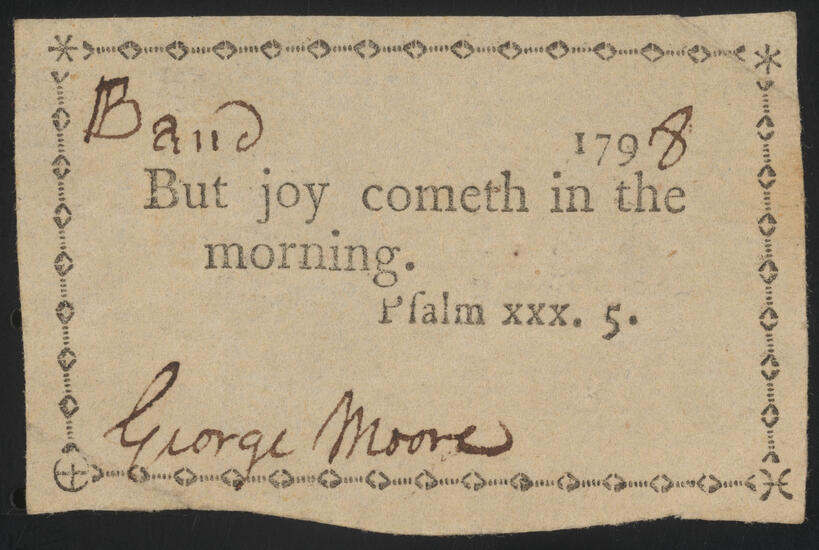 Band
1798
But joy cometh in the
morning.
Pſalm xxx. 5.
George Moore